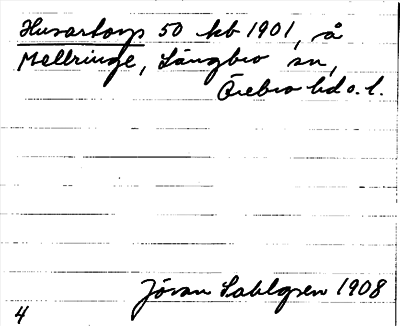 Husartorp 50 kb 1901, å
Mellringe, Längbro sn,
Örebro hd o. l.
Jöran Sahlgren 1908
4